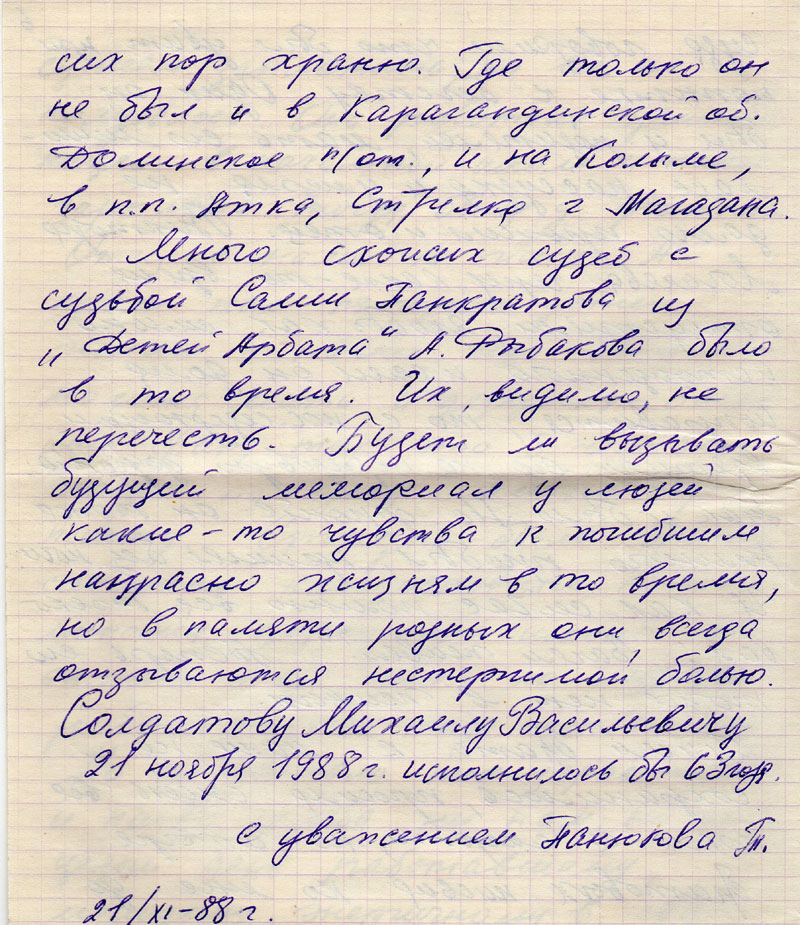 сих пор храню. Где только он
не был и в Карагандинской об.
Долинское п/от., и на Колыме,
в п.п. Атка, Стрелка г Магадана.
Много схожих судеб с
судьбой Саши Панкратова из
„Детей Арбата“ А. Рыбакова было
в то время. Их, видимо, не
перечесть. Будет ли вызывать
будущий мемориал у людей
какие-то чувства к погибшим
напрасно жизням в то время,
но в памяти родных они всегда
отзываются нестерпимой болью.
Солдатову Михаилу Васильевичу
21 ноября 1988 г. исполнилось бы 63
с уважением Панюкова Т.
21/XI-88 г.